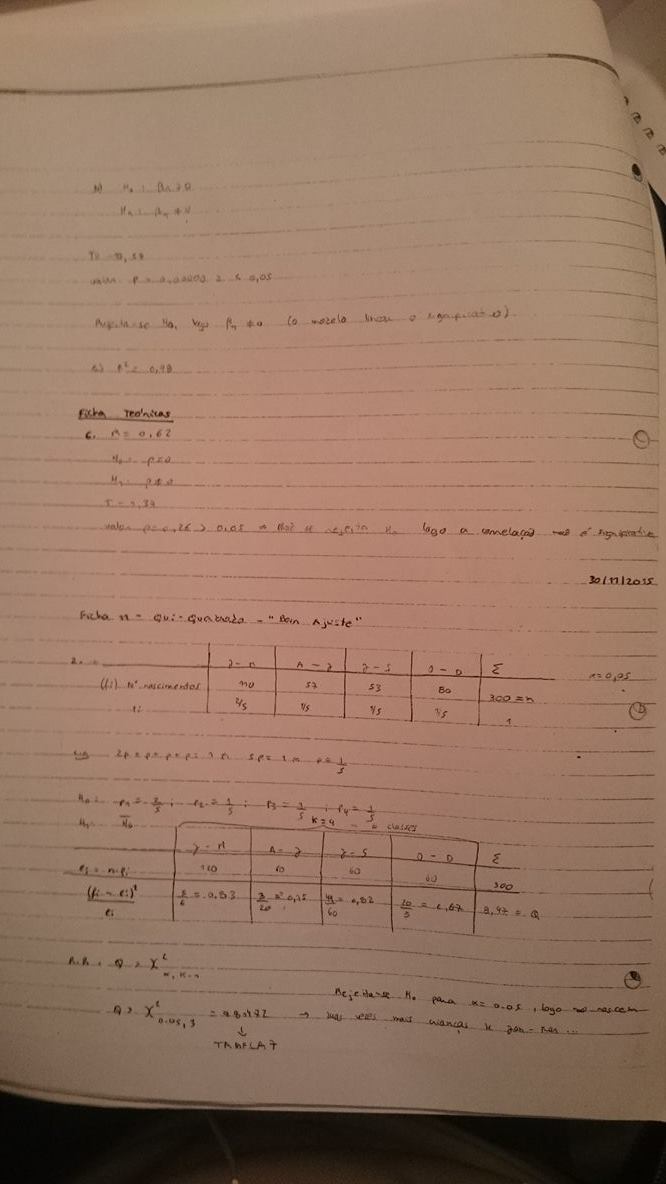 Tc = 0,58
valor P = 0,00002 < 0,05
Rejeita-se H₀, logo β₁ ≠ 0 (o modelo linear é significativo).
c) R² = 0,98
Ficha Teóricas
6. R = 0,62
H₀: ρ=0
H₁: ρ≠0
valor p=0,26 > 0.05 → Não se rejeita H₀ logo a correlação não é significativa
30/11/2015
Ficha 11 - Qui-Quadrado - "Bom Ajuste"
2. J-M A-J J-S O-D Σ α=0,05
(fi) Nº nascimentos 110 57 53 80 300=n
2/5 1/5 1/5 1/5 1
5p=1 p=1/5
H₀: p₁=2/5; p₂=1/5; p₃=1/5; p₄=1/5
H₁: H̅₀ K=4 classes
J-M A-J J-S O-D Σ
ei=n.pi 120 60 60 60 300
(fi-ei)²/ei 5/6=0,83 3/20=0,15 49/60=0,82 20/3=6,67 8,47=Q
R.R.: Q > χ²α, K-1
Q > χ²0.05, 3 = → Rejeita-se H₀ para α=0.05, logo não nascem
duas vezes mais crianças de Jan-Mar...
↓
TABELA 7